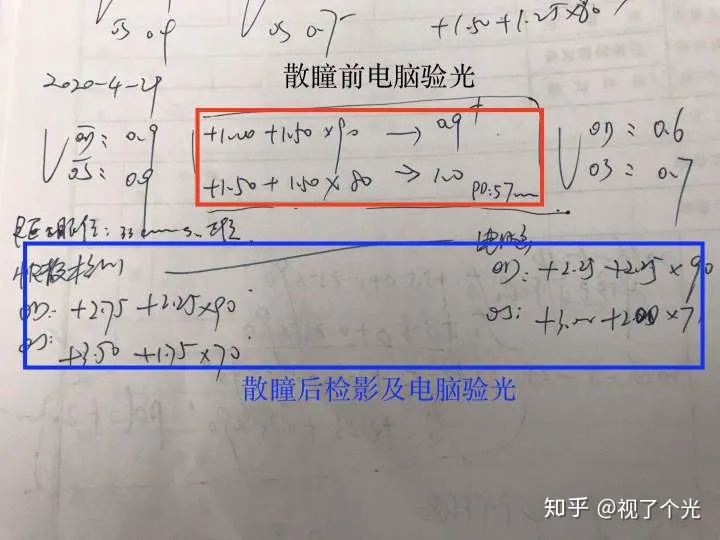 OS 0.9
OS 0.7
+1.50 +1.25×80
散瞳前电脑验光
2020-4-29
V OD: 0.9
OS: 0.9
+1.00 +1.50×90 → 0.9+
+1.50 +1.50×80 → 1.0
PD:57mm
V OD: 0.6
OS: 0.7
33cm
OD: +2.75 +2.25×90
OS: +3.50 +1.75×70
OD: +2.25 +2.25×90
OS: +3.00 +2.00×7
散瞳后检影及电脑验光
知乎 @视了个光